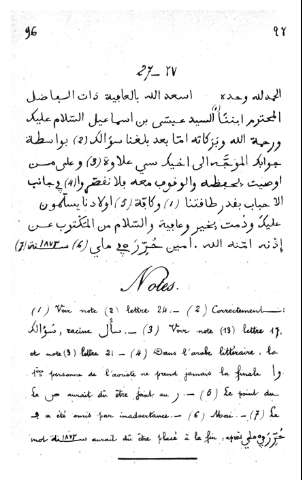 96 ٩٦
27 — ٢٧
الحمد لله وحده اسعد الله بالعافية ذات الفاضل
المحترم ابننا السيد عيسى بن اسماعيل السلام عليك
ورحمة الله وبركاته امّا بعد بلغنا سؤالك (2) بواسطة
جوابك الموجّه الى اخيك سي علاوة (3) وعلى من
اوصيت بحفظه والوقوف معه بلا نقصر وا(4) في جانب
الاحباب بقدر طاقتنا (1) وكافة (5) اولادنا يسلمون
عليك ودمت بخير وعافية والسلام من المكتوب عن
إذنه امنه الله. امين حُرّر في ماي (6) سنة ١٨٧٣ (7)
Notes.
(1) Voir note (2) lettre 24. — (2) Correctement :
سُؤالك, racine سأل. — (3) Voir note (13) lettre 17.
et note (3) lettre 21. — (4) Dans l'arabe littéraire, la
1ère personne de l'aoriste ne prend jamais la finale وا
Le ص aurait dû être joint au ر. — (5) Le point du
ف a été omis par inadvertance. — (6) Mai. — (7) Le
mot سنة ١٨٧٣ aurait dû être placé à la fin, après حُرّر في ماي